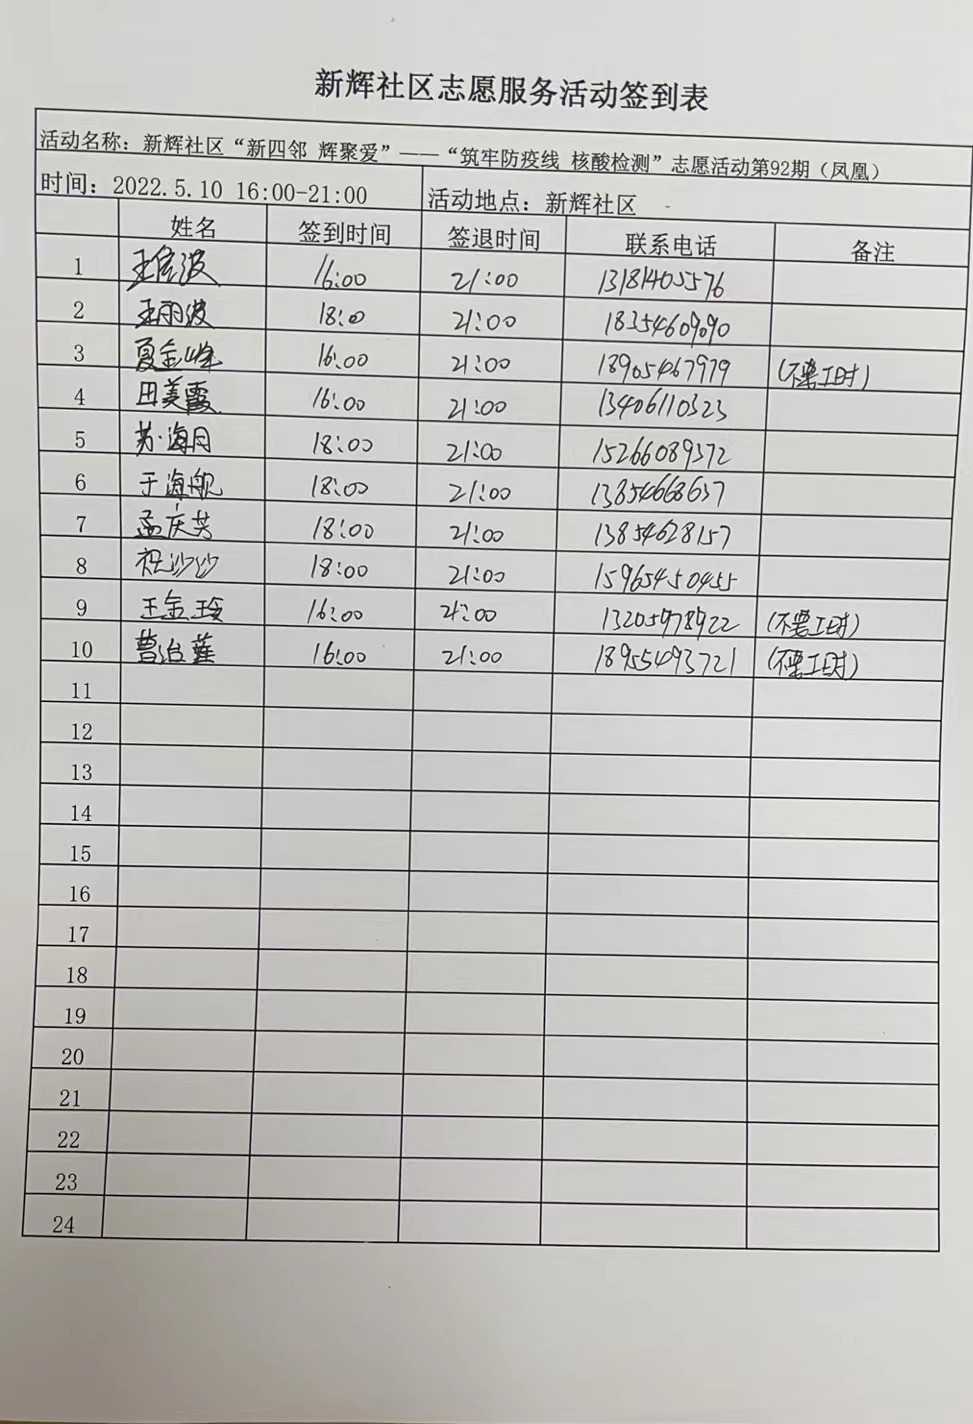 新辉社区志愿服务活动签到表
活动名称：新辉社区“新四邻 辉聚爱”——“筑牢防疫线 核酸检测”志愿活动第92期（凤凰）
时间：2022.5.10 16:00-21:00 活动地点：新辉社区
姓名 签到时间 签退时间 联系电话 备注
1 王信波 16:00 21:00 13181405576
2 王雨波 18:0 21:00 18354609090
3 夏金峰 16:00 21:00 18905467979 (不要工时)
4 田美霞 16:00 21:00 13406110323
5 苏海月 18:00 21:00 15266089372
6 于海舰 18:00 21:00 13854668637
7 孟庆芸 18:00 21:00 13854628157
8 祝沙沙 18:00 21:00 15965450455
9 王金玲 16:00 21:00 13205978922 (不要工时)
10 曹治莲 16:00 21:00 18955493721 (不要工时)
11
12
13
14
15
16
17
18
19
20
21
22
23
24